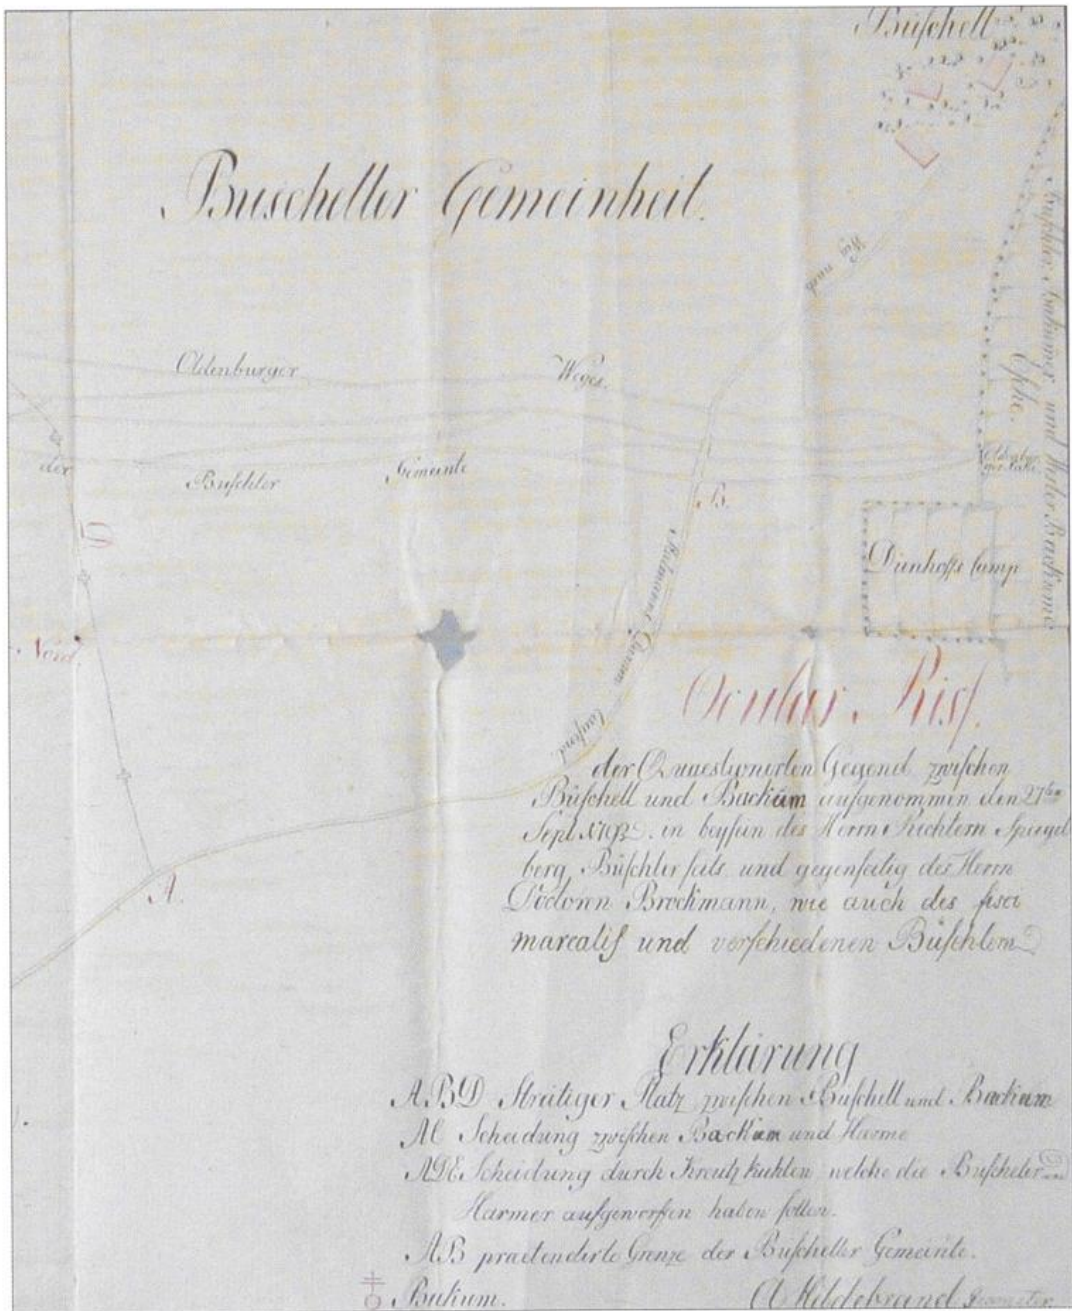 Büschell
Buscheller Gemeinheit.
Weg nach
Büscheller und
Esche.
Oldenburger Weges.
der Buschler Gemeinte
B.
D
Dienhoffs Camp
Nord.
laufend.
A.
Oculas Riss.
der Quaestionirten Gegend zwischen
Büschell und Backum aufgenommen den 27ten
Sept 1792. in beysein des Herrn Richtern Spiegel
berg Büschler seits und gegenseitig des Herrn
Doctoren Brockmann, wie auch des fisci
marcalis und verschiedenen Büschlern
Erklärung
ABD Streitiger Platz zwischen Buschell und Backum
AC Scheidung zwischen Backum und Harme
ADE Scheidung durch Kreutz Kuhlen welche die Buscheler und
Harmer aufgeworffen haben sollen.
AB praetendirte Grenze der Buscheller Gemeinte.
Bukum. Hildebrand